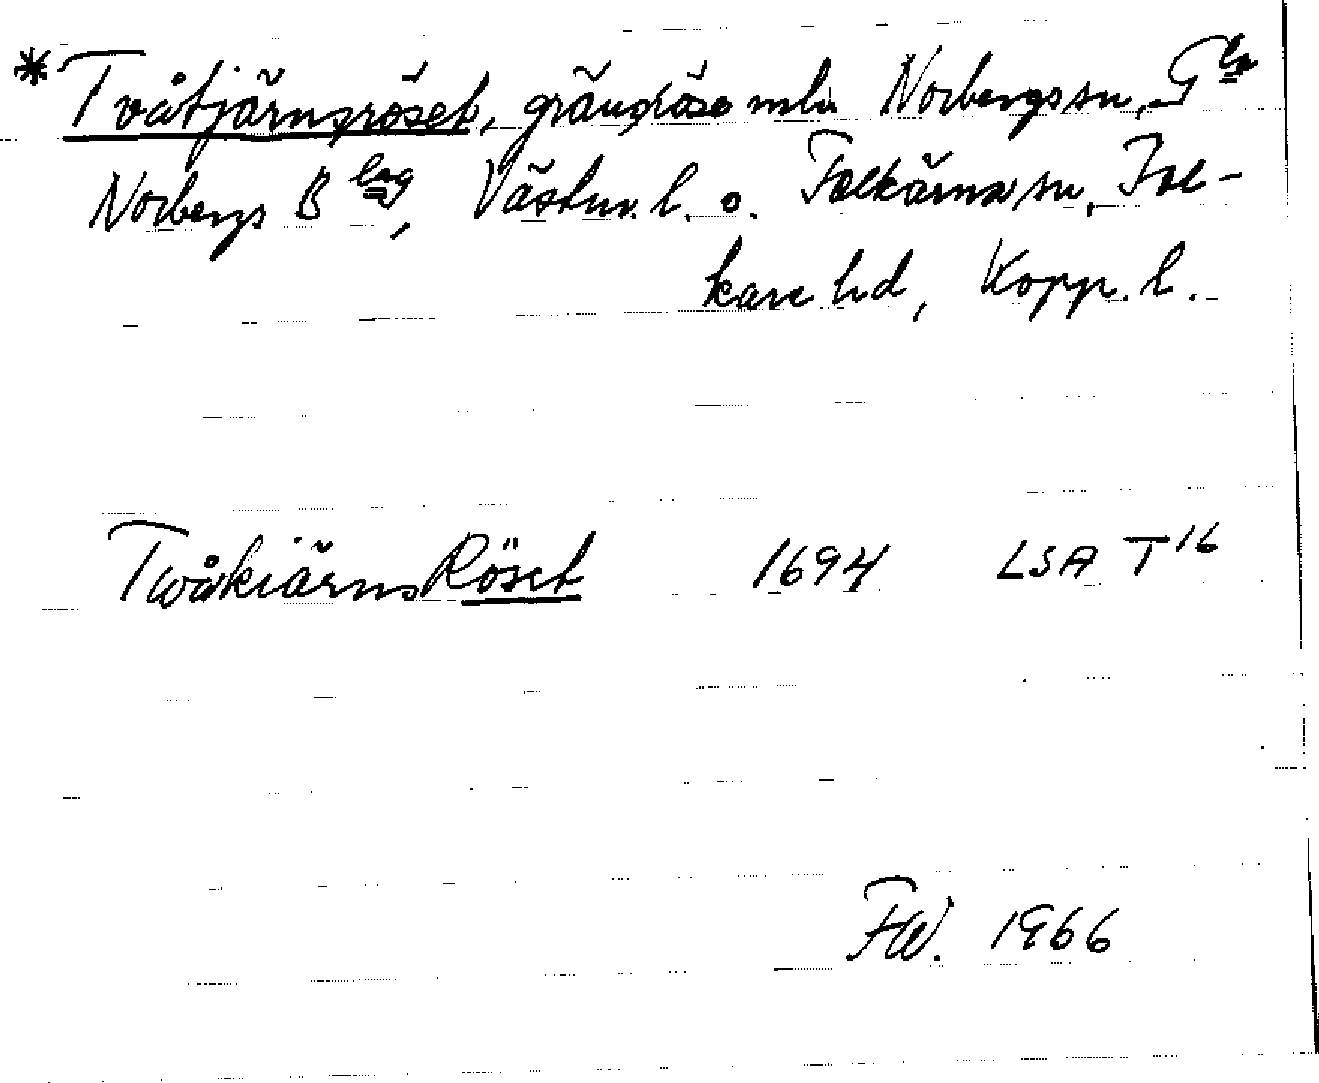 *Tvåtjärnsröset, gränsröse mln Norbergs sn, G la
Norbergs B lag, Västm. l. o. Folkärna sn, Fol-
kare hd, Kopp. l.
TwåkiärnsRöset 1694 LSA T 16
FW. 1966